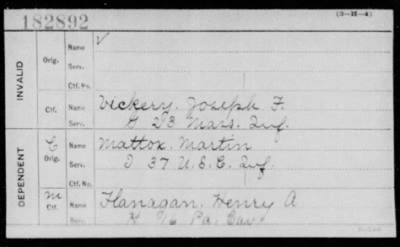 182892
(3-H-4)
INVALID
Orig. Name
Serv.
Ctf. No.
Ctf. Name Vickery, Joseph F.
Serv. G 23 Mass. Inf.
DEPENDENT
C Orig. Name Mattox, Martin
Serv. I 37 U.S.C. Inf.
Ctf. No.
M Ctf. Name Flanagan, Henry A
Serv. K 16 Pa. Cav.